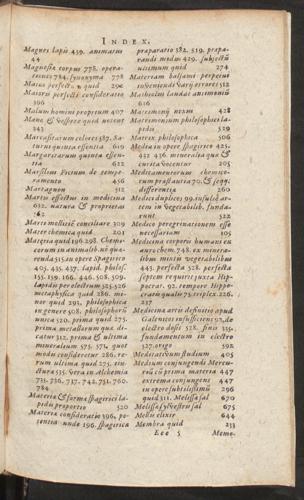 INDEX.
Magnes lapis 439. animatus
44
Magnesiæ corpus 778. opera-
tiones 784. synonyma 778
Maius perfectu quid 296
Maiestri perfecti consideratio
396
Malum homini proprium 407
Mane & vespere quid notent
343
Marcasitarum colores 587. Sa-
turni quinta essentia 619
Margaritarum quinta essen-
tia 622
Marsilius Ficinus de tempe-
ramento 456
Martagon 512
Martis effectus in medicina
632. natura & proprietas
762
Marte mollities conciliare 309
Mater chemica quid 201
Materia quid 196. 298. Chemi-
corum in animalib. nõ quæ-
renda 515. in opere spagirico
405. 435. 437. lapid. philos.
155. 159. 166. 446. 508. 509.
lapidis per electrum 525. 526
metaphysica quid 286. mi-
nor quid 291. philosophica
in genere 508. philosophorũ
unica 520. prima quid 275.
prima metallorum qua di-
catur 312. prima & ultima
mineralium 575. 571. quot
modis consideretur 286. re-
rum ultima quid 275. tin-
cturæ 535. vera in alchemia
731. 736. 737. 742. 751. 760.
784
Materia & forma spagirici la-
pidis proportio 520
Materia consideratio 396. po-
tentia unde 196. spagirica
præparatio 382. 519. præpa-
randi modus 429. subjectũ
vicissimum quid 274
Materiam balsami perpetui
invenienda varij errores 512
Mathesin laudat animonii
616
Matrimonij nexus 428
Matrimonium philosophici la-
pidis 529
Matrix philosophica 506
Media in opere spagirico 425.
432. 436. mineralia quæ &
cur ita vocentur 205
Medicamentorum chemico-
rum præstantia 70. & seqq.
differentia 260
Medici duplices 99. insulse ar-
tem in vegetabilib. funda-
runt 522
Medico peregrinationem esse
necessariam 105
Medicina corporis humani ex
auro chem. 748. ex minera-
libus mixtis vegetabilibus
443. perfecta 528. perfecta
septem requirit juxta Hip-
pocrat. 92. tempore Hippo-
cratis qualis 75. triplex 226.
237
Medicina artis defensio apud
Galenicos insufficiens 92. de
electro dosis 528. finis 335.
fundamentum in electro
527. origo 592
Mediatricum studium 405
Medium conjungendi Mercu-
riũ cũ prima materia 447
extrema conjungens 447
in opere subtilissimũ 296
quid 311. Melissæ sal 670
Melissæ sylvestris sal 675
Mellis elixir 644
Membra quid 233
Eee 5 Meme-